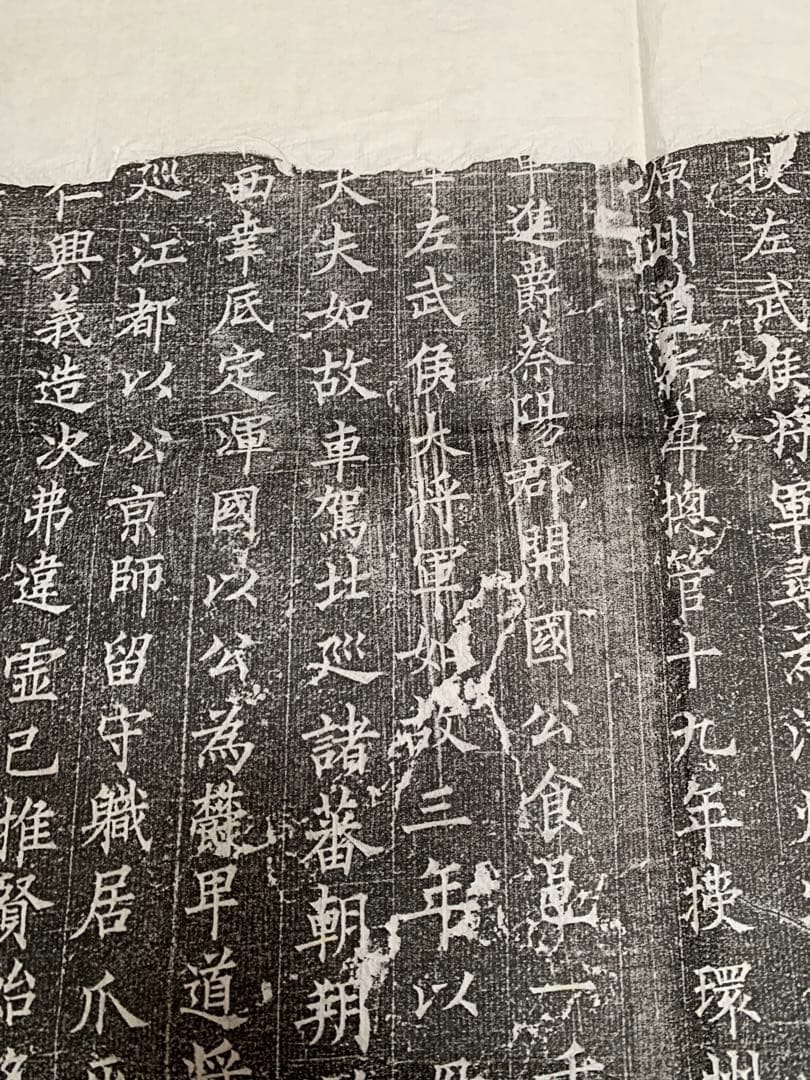 授左武侯將軍尋為
原州道行軍摠管十九年授環州
年進爵蔡陽郡開國公食邑一千
年左武侯大將軍如故三年以
大夫如故車駕北巡諸蕃朝朔
西幸底定渾國以公為甲道將
巡江都以公京師留守職居爪
仁興義造次弗違虛己推賢